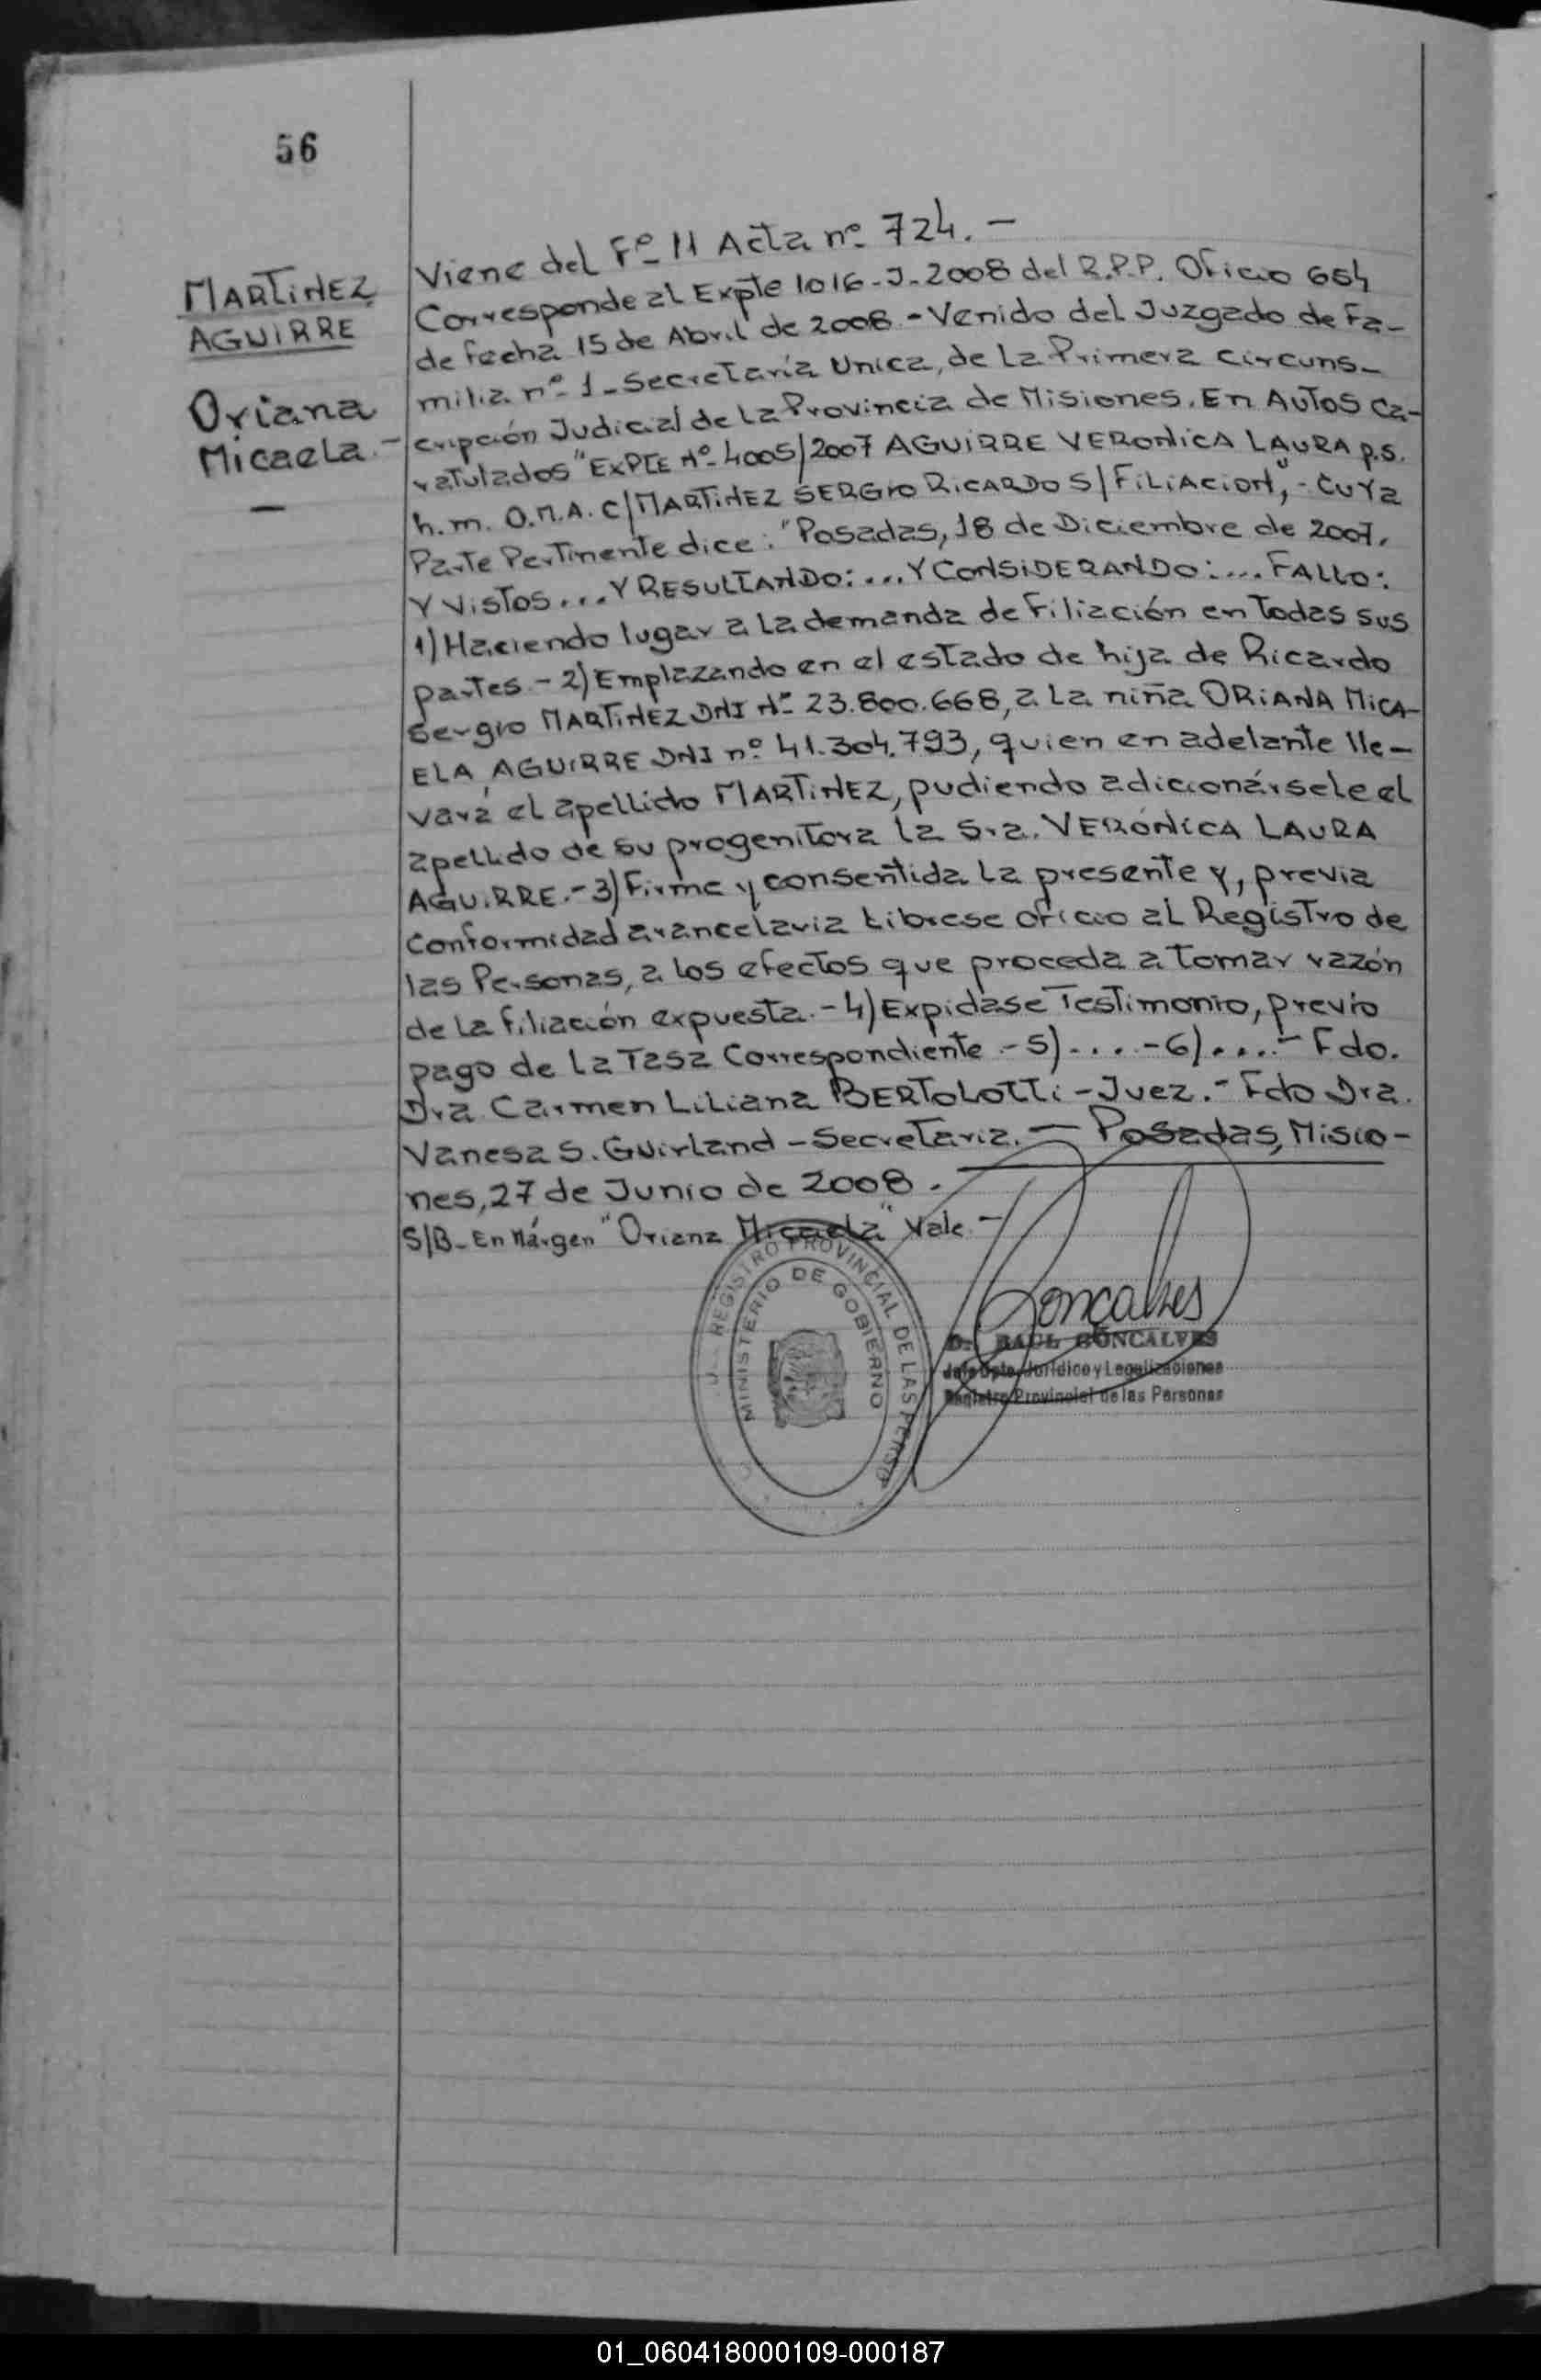 56
MARTINEZ
AGUIRRE
Oriana
Micaela.-
Viene del Fº 11 Acta nº 724.-
Corresponde al Expte 1016-J-2008 del R.P.P. Oficio 654
de fecha 15 de Abril de 2008.- Venido del Juzgado de Fa-
milia nº 1-Secretaría Unica, de La Primera Circuns-
cripción Judicial de La Provincia de Misiones. En Autos Ca-
ratulados "EXPTE Nº 4005/2007 AGUIRRE VERONICA LAURA p.s.
h.m. O.M.A. C/MARTINEZ SERGIO RICARDO S/FILIACION", - Cuya
Parte Pertinente dice: "Posadas, 18 de Diciembre de 2007.
Y VISTOS... Y RESULTANDO:... Y CONSIDERANDO:... FALLO:
1) Haciendo lugar a La demanda de Filiación en Todas sus
partes.- 2) Emplazando en el estado de hija de Ricardo
Sergio MARTINEZ DNI Nº 23.800.668, a La niña ORIANA MICA-
ELA AGUIRRE DNI nº 41.304.793, quien en adelante lle-
vará el apellido MARTINEZ, pudiendo adicionársele el
apellido de su progenitora la Sra. VERÓNICA LAURA
AGUIRRE.- 3) Firme y consentida La presente y, previa
Conformidad arancelaria Librese oficio al Registro de
las Personas, a los efectos que proceda a Tomar razón
de La filiación expuesta.- 4) Expidase Testimonio, previo
pago de La Tasa Correspondiente.- 5)....-6)....- Fdo.
Dra Carmen Liliana BERTOLOTTI - Juez.- Fdo Dra.
Vanesa S. Guirland - Secretaria.- Posadas, Misio-
nes, 27 de Junio de 2008.
S/B- En Márgen "Oriana Micaela" Vale.-
REGISTRO PROVINCIAL DE LAS PERSO
MINISTERIO DE GOBIERNO
Goncalves
RAUL GONCALVES
Jefe Dpto. Jurídico y Legalizaciones
Registro Provincial de las Personas
01_060418000109-000187